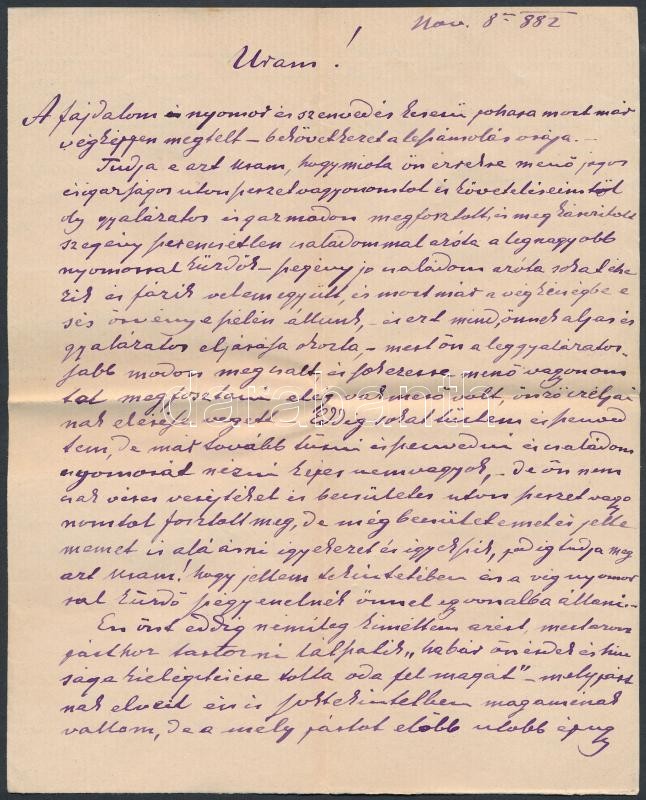 Nov. 8 882
Uram!
A fájdalom és nyomor és szenvedés keserü pohara most már
végképpen megtelt – bekövetkezet a leszámolás órája. –
Tudja e azt Uram, hogy miota ön ezrekre menő jogos
és igazságos uton szerzet vagyonomtol és követeléseimtöl
oly gyalázatos és gaz modon megfosztott, és megkárositott
szegény szerencsétlen családommal azóta a legnagyobb
nyomorral küzdök – szegény jo családom azóta sokat éhe
zik és fázik velem együtt, és most már a végkétségbe e
sés örvénye szélén állunk, – és ezt mind, önnek aljas és
gyalázatos eljárása okozta, – mert ön a leggyalázatos-
sabb modon megcsalt és sokezerre menő vagyonom
tol megfosztani elég vakmerő volt, önző céljai
nak elérése végett. Eddig sokat türtem és szenved
tem, de már tovább türni és szenvedni és családom
nyomorát nézni képes nem vagyok, – de ön nem
csak véres verejtékel és becsületes uton szerzet vagyo
nomtol fosztott meg, de még becsületemet és jelle
memet is aláásni igyekezet és igyekszik, pedig tudja meg
azt Uram! hogy jellem tekintetében én a vég nyomor
ral küzdő szégyenelnék önnel egy vonalba állani. –
Én önt eddig némileg kiméltem azért, mert azon
párthoz tartozni látszatik, "habár önérdek és hiu
sága kielégitésére tolta oda fel magát" – mely párt
nak elveit én is sok tekintetben magaménak
vallom, de a mely pártot előbb utobb épugy
darabanth